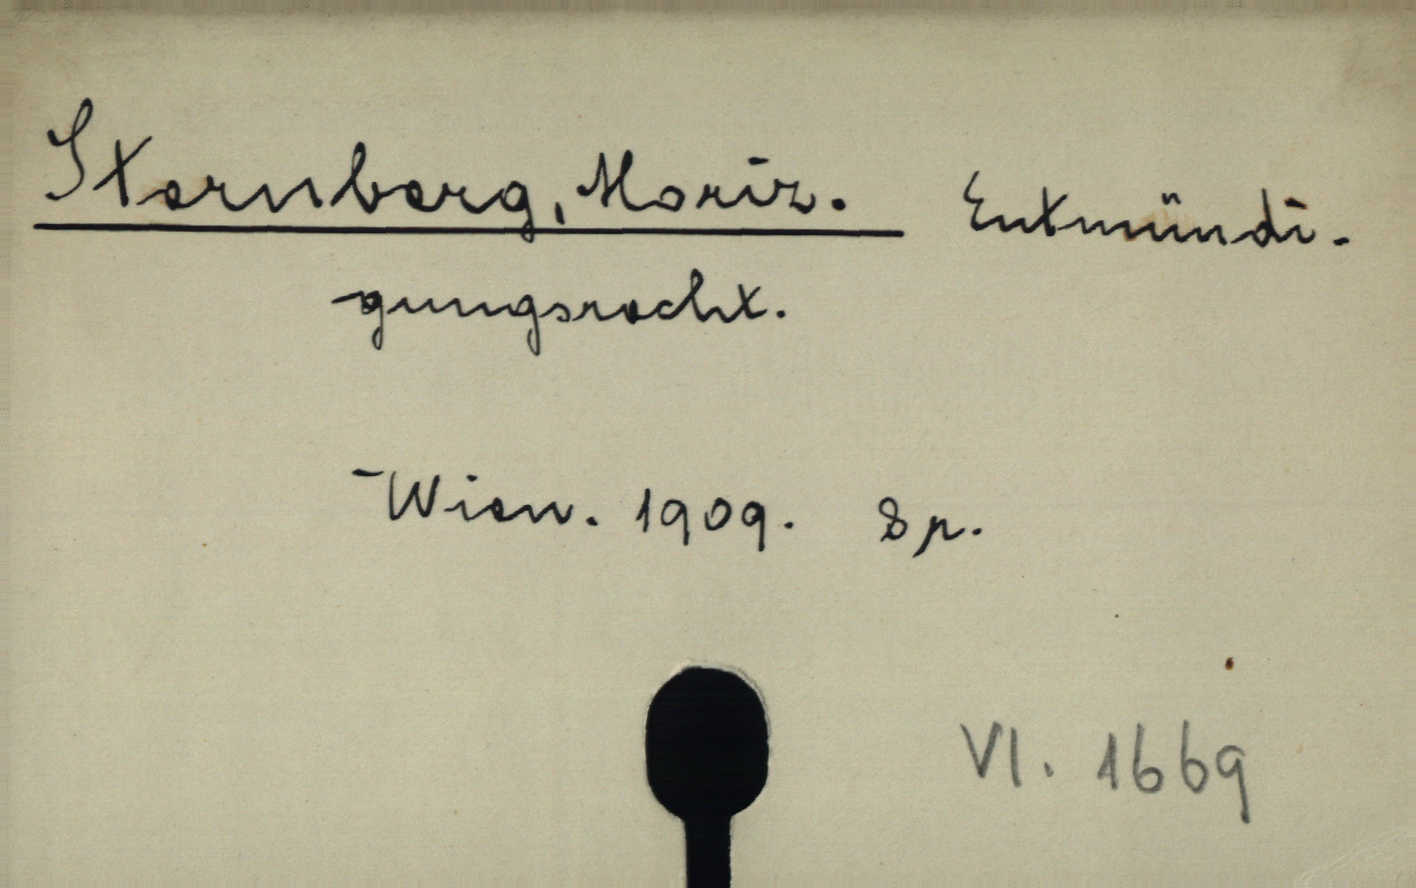 Sternberg, Moriz. Entmündi-
gungsrecht.
Wien. 1909. 8 p.
VI. 1669